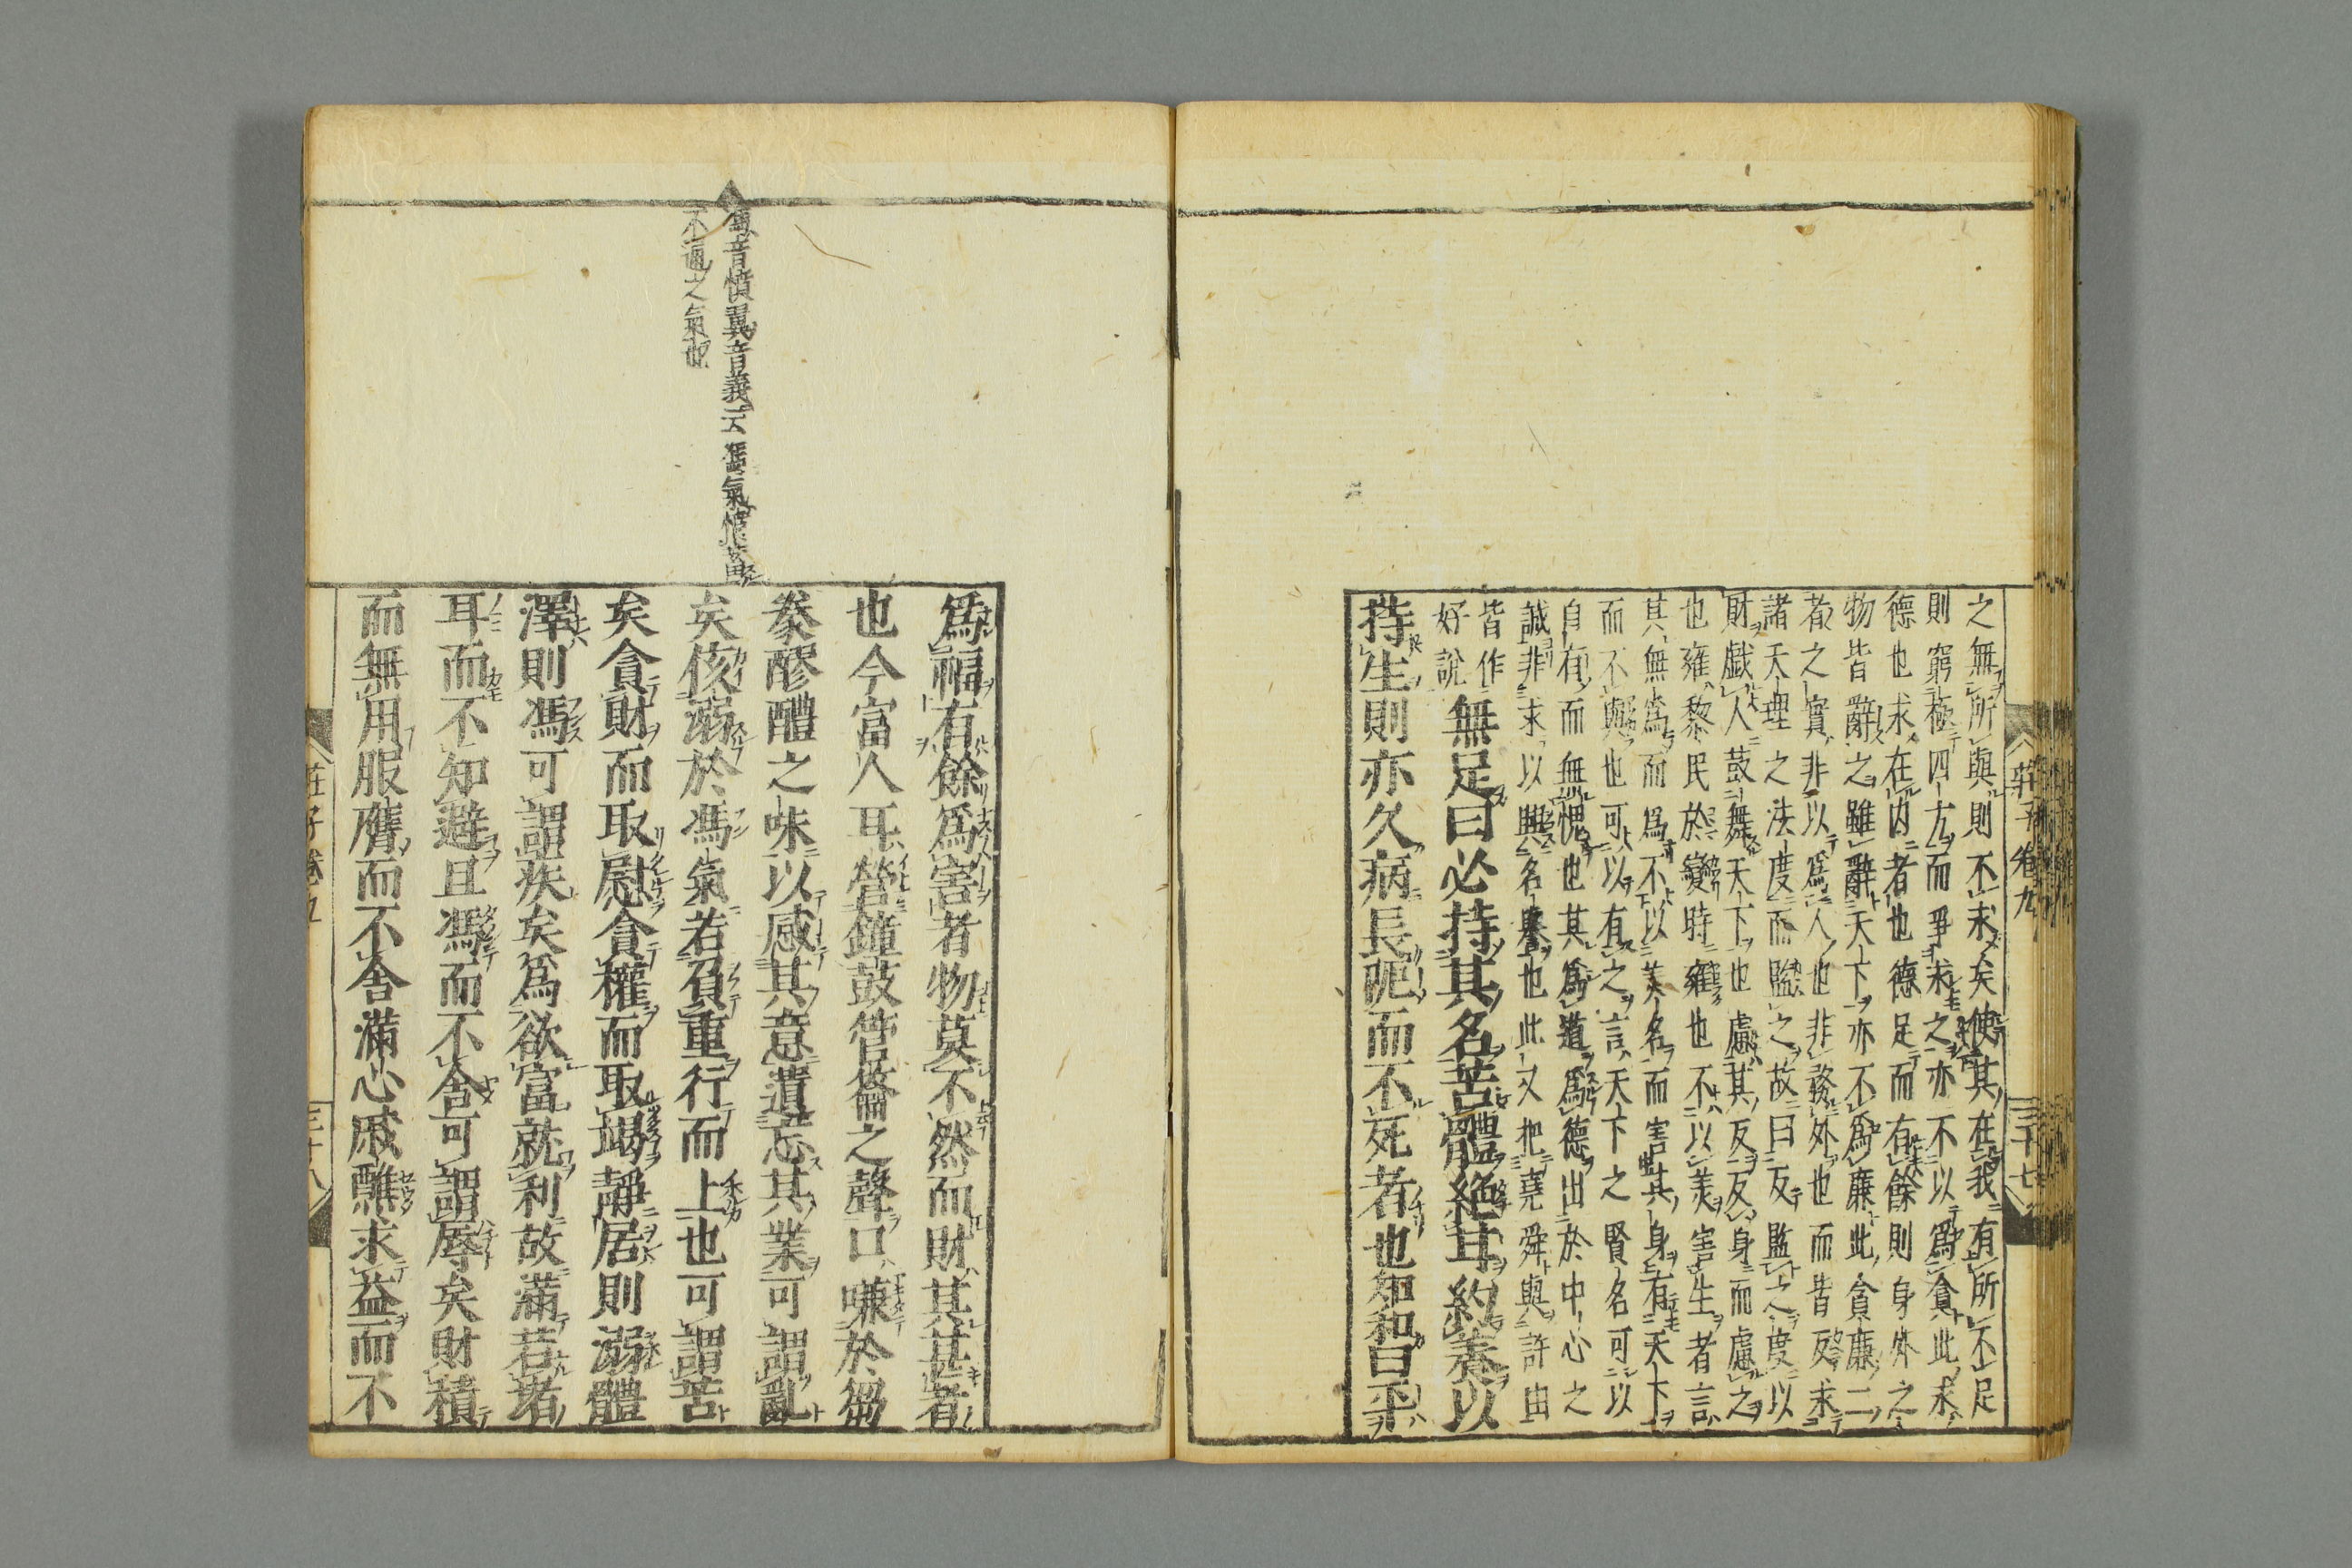 之無所與則不求矣使其在我有所不足
則窮極四方而爭求之亦不以爲貪此求
德也求在内者也德足而有餘則身外之
物皆辭之雖辭天下亦不爲廉此貪廉二
者之實非以爲人也非務外也而皆反求
諸天理之法度而監之故曰反監之度以
財戲人鼓舞天下也慮其反反身而慮之
也雍黎民於變時雍也不以美害生者言
其無爲而爲不以美名而害其身有天下
而不與也可以有之言天下之賢名可以
自有而無愧也其爲道爲德出於中心之
誠非求以興名譽也此又把堯舜與許由
皆作
好說
無足曰必持其名苦體絶耳約養以
持生則亦久病長阨而不死者也知和曰平
莊子卷九
三十七
爲福有餘爲害者物莫不然而財其甚者
也今富人耳營鐘鼓管籥之聲口嗛於芻
豢醪醴之味以感其意遺忘其業可謂亂
矣侅溺於馮氣若負重行而上也可謂苦
矣貪財而取慰貪權而取竭靜居則溺體
澤則馮可謂疾矣爲欲富就利故滿若堵
耳而不知避且馮而不舍可謂辱矣財積
而無用服膺而不舍滿心戚醮求益而不
音憤翼音義云馮氣憤畜
不通之氣也
莊子卷九
三十八